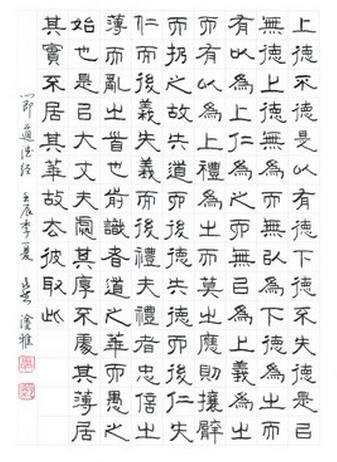 上德不德是以有德下德不失德是以
無德上德無為而無以為下德為之而
有以為上仁為之而無以為上義為之
而有以為上禮為之而莫之應則攘臂
而扔之故失道而後德失德而後仁失
仁而後義失義而後禮夫禮者忠信之
薄而亂之首也前識者道之華而愚之
始也是以大丈夫處其厚不處其薄居
其實不居其華故去彼取此
節道德經 壬辰季夏